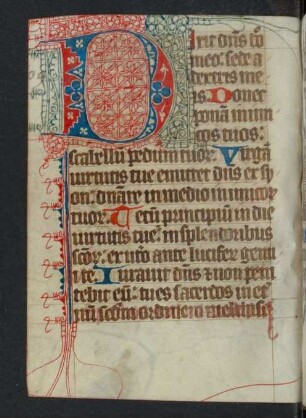 Dixit dns do
meo: sede a
dextris me
is Donec
ponā inimi
cos tuos:
scabellū pedum tuoꝝ. Virgā
uirtutis tue emittet dns ex sy
on: dnare in medio inimicor
tuoꝝ. Tecū principiū in die
uirtutis tue in splendoribus
scoꝝ: ex uto ante lucifer genui
te. Iurauit dns & non peni
tebit eū: tu es sacerdos in et
nū scdm ordinem melchise